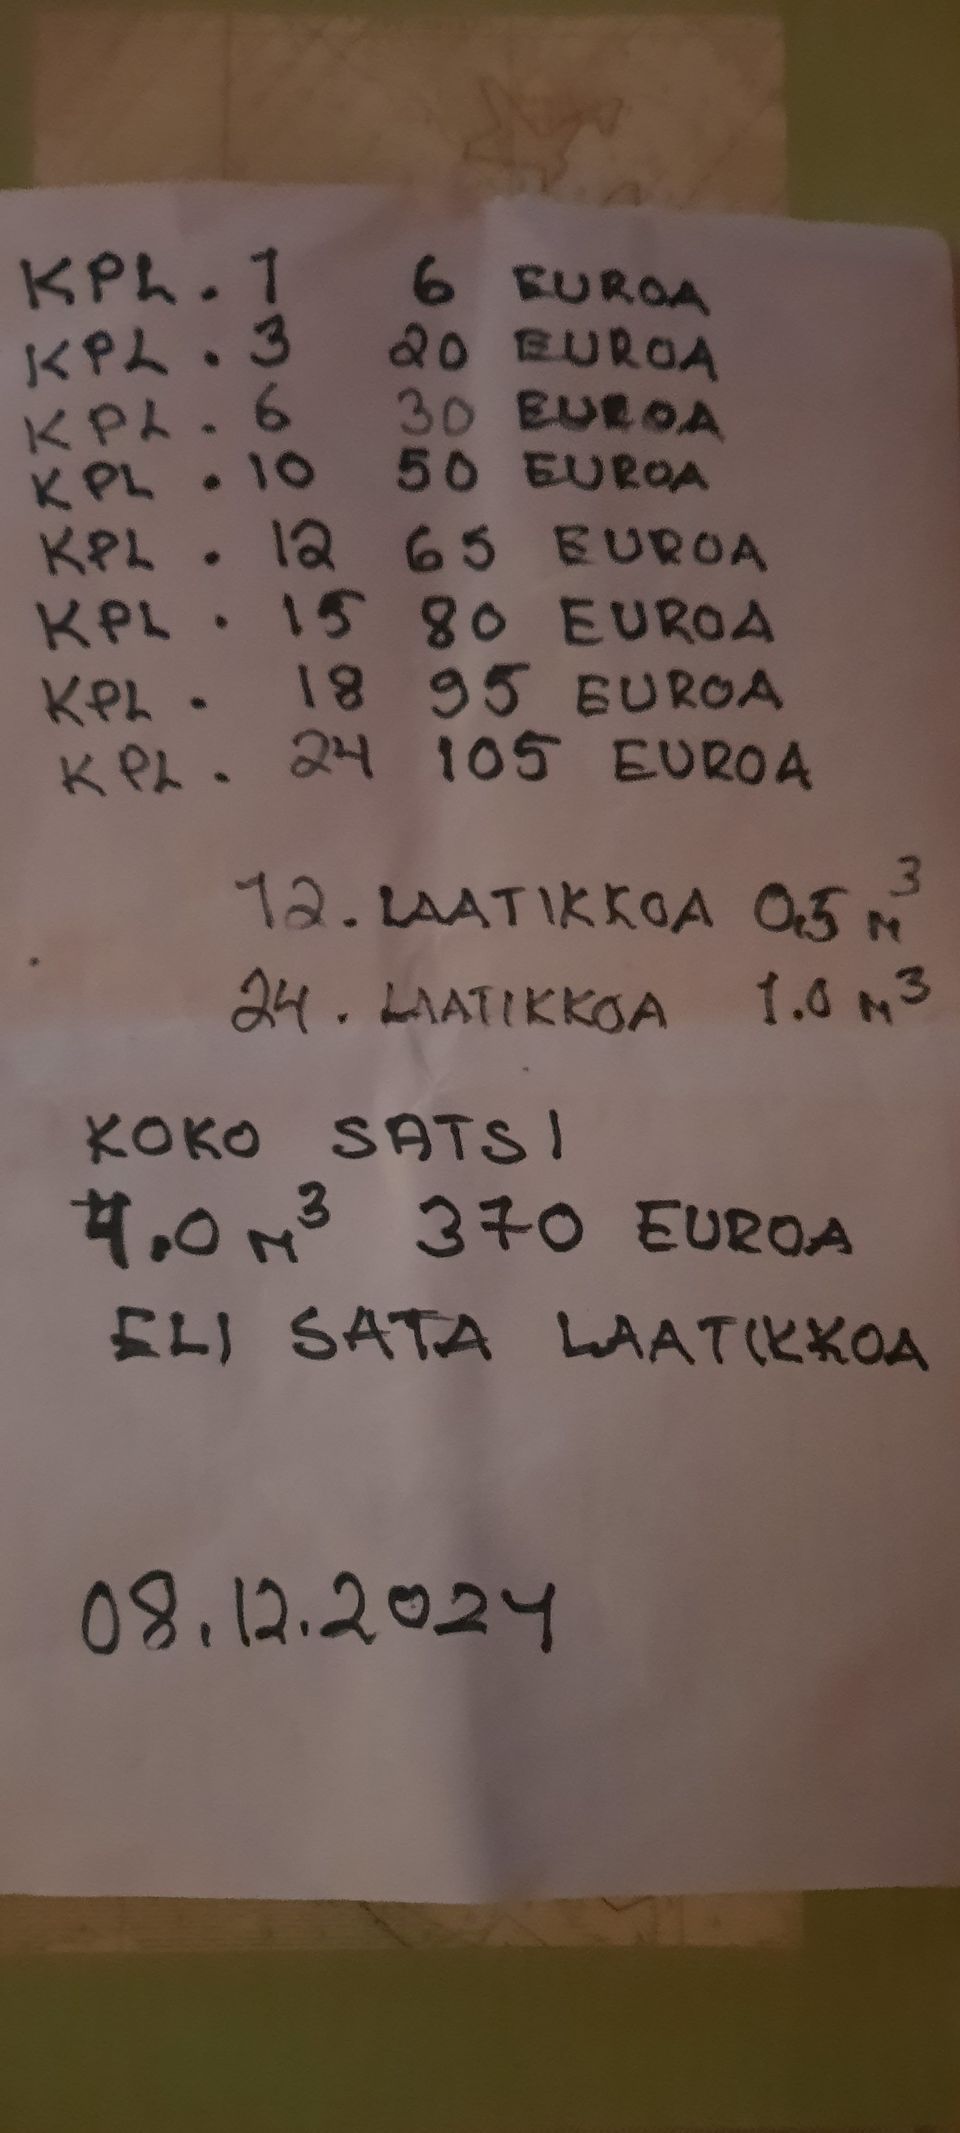 KPL. 1 6 EUROA
KPL. 3 20 EUROA
KPL. 6 30 EUROA
KPL. 10 50 EUROA
KPL. 12 65 EUROA
KPL. 15 80 EUROA
KPL. 18 95 EUROA
KPL. 24 105 EUROA
12. LAATIKKOA 0.5 M³
24. LAATIKKOA 1.0 M³
KOKO SATSI
4.0 M³ 370 EUROA
ELI SATA LAATIKKOA
08.12.2024